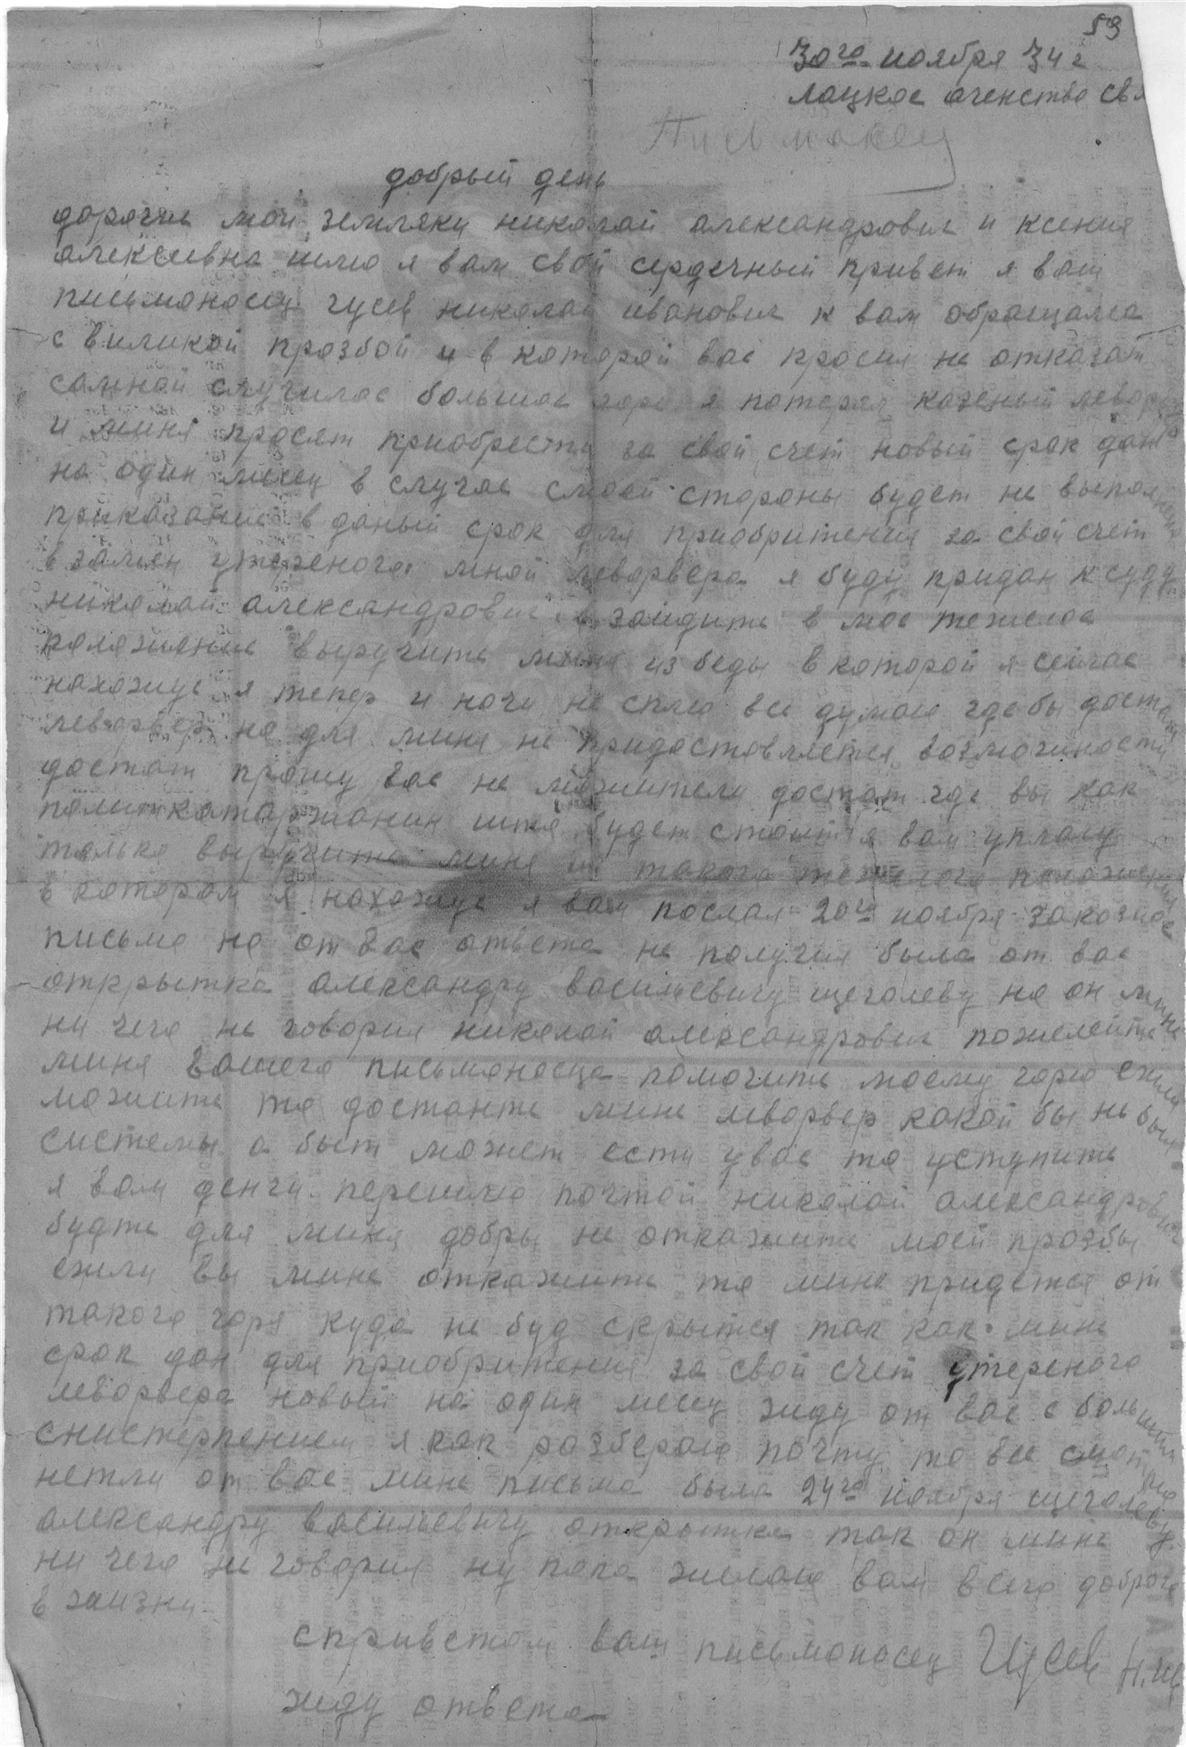 59
30го ноября 34 г
лацкое агенство св.
Письмонос
добрый день
дорогие мои земляки николай александрович и ксения
алексеивна шлю я вам свой сердечный привет я ваш
письмоносец гусев николай иванович к вам обращаюсь
с виликой прозбой и в которой вас просил не отказат
самной случилос большое горе я потерял казеный левор
и миня просят приобрести за свой счет новый срок дан
на один месец в случае смоей стороны будет не выполнен
приказание в даный срок для приобритения за свой счет
в замен утереного мной леворвера я буду придан к суду
николай александрович взойдите в мое тежелое
положение выручите миня из беды в которой я сейчас
нахожус я тепер и ночи не сплю все думаю где бы достат
леворвер но для миня не придостовляется возможности
достат прошу вас не можители достат где вы как
политкаторжанин што будет стоит я вам уплачу
только выручите миня из такого тежелого положения
в котором я нахожус я вам послал 20го ноября заказное
письмо но от вас ответа не получил была от вас
открытка александру васильевичу щеголеву но он мине
ни чего не говорил николай александрович пожелейте
миня вашего письмоносца помогите моему горю ежли
можите то достанте мине леворвер какой бы не был
системы а быт может ести увас то уступите
я вам денги перешлю почтой николай александрович
будте для миня добры не откажите моей прозбы
ежли вы мине откажите то мине придется от
такого горя куда не буд скрытся так как мине
срок дан для приобритения за свой счет утереного
леворвера новый на один месец жду от вас с большим
снистерпением я как разбераю почту то все смотрю
нетли от вас мине письма была 24го ноября щеголеву
александру васильевичу открытка так он мине
ни чего не говорил ну пока желаю вам всего доброго
в жизни
сприветом ваш письмоносец Гусев Н.И.
жду ответа